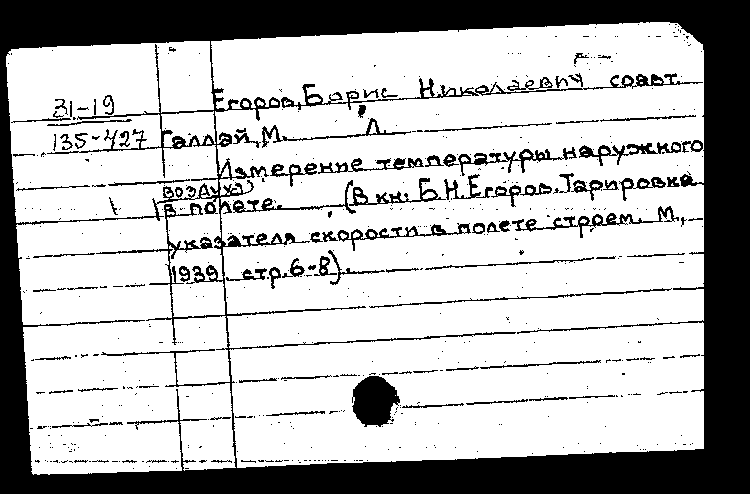 31-19
Егоров, Борис Николаевич соавт.
135-427 Галлай, М. Л.
Измерение температуры наружного
воздуха
в полете. (В кн: Б.Н. Егоров. Тарировка
указателя скорости в полете строем. М.,
1939. стр. 6-8).